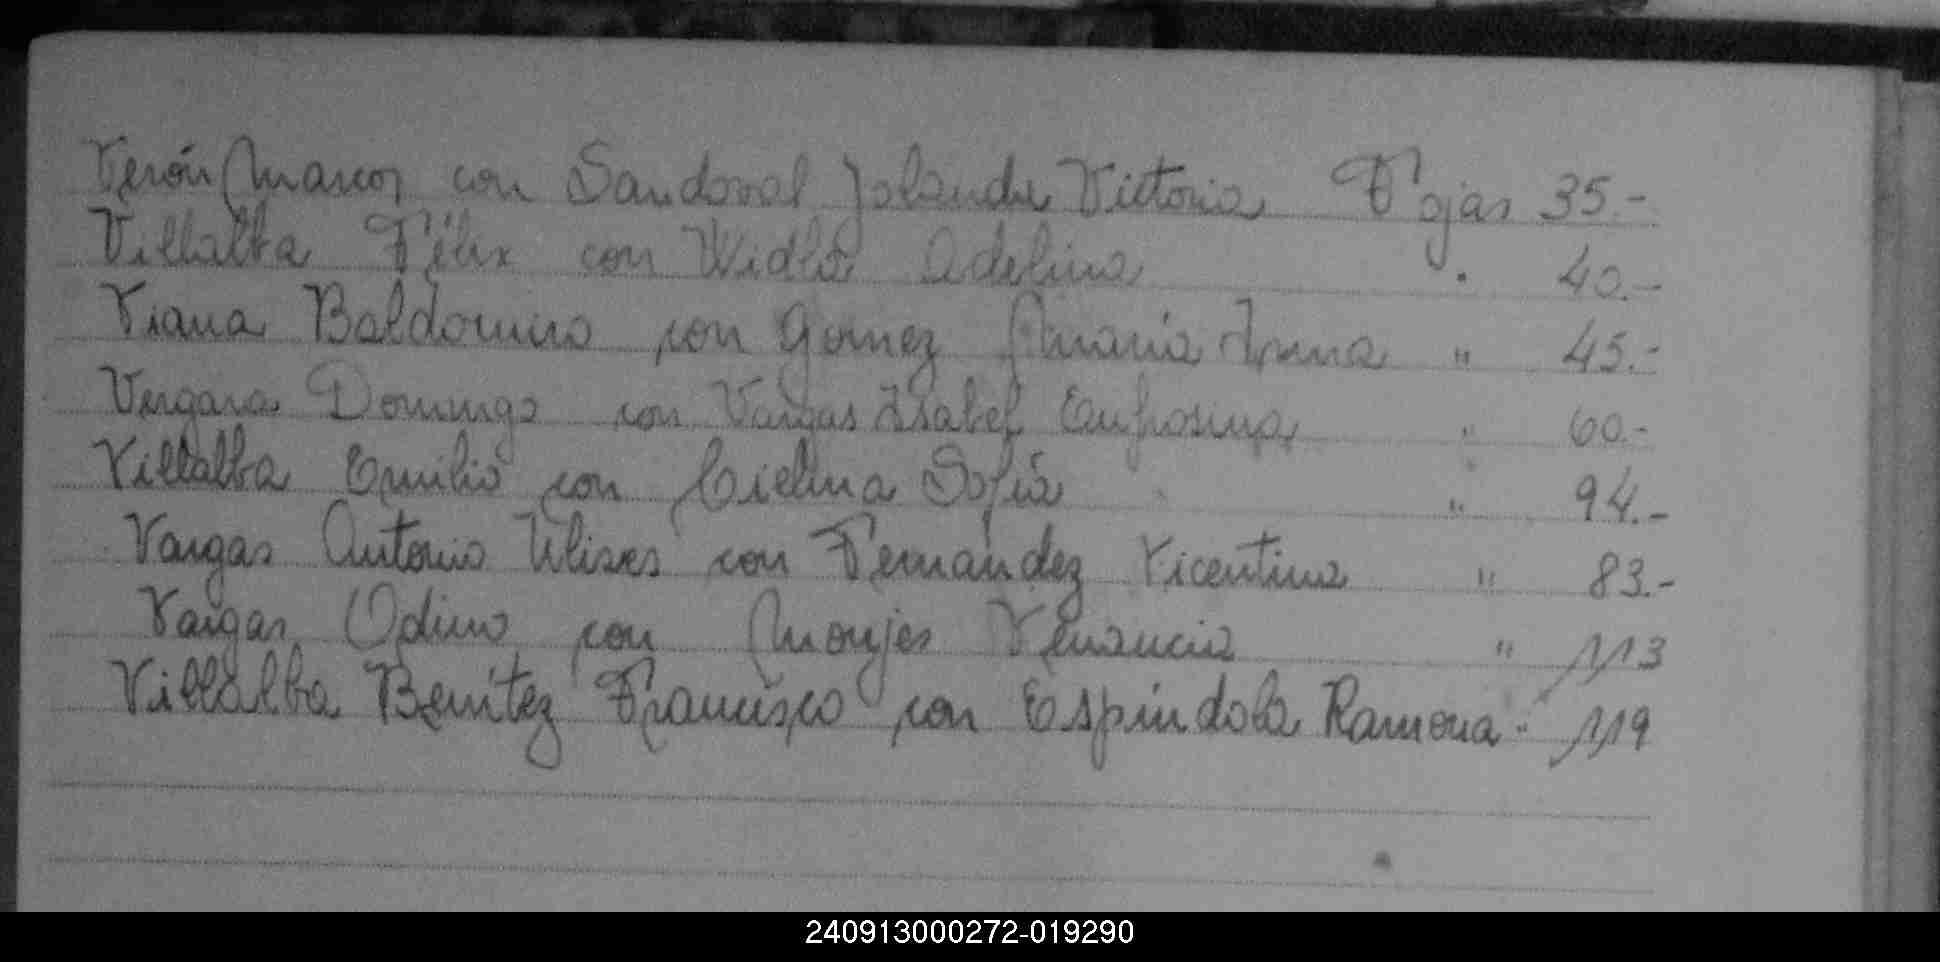 Verón Marcos con Sandoval Jolanda Victoria Fojas 35.-
Villalba Félix con Widla Adelina " 40.-
Viana Baldomino con Gomez Maria Irma " 45.-
Vergara Domingo con Vargas Isabel Eufrosina " 60.-
Villalba Emilio con Cielina Sofia " 94.-
Vargas Antonio Ulises con Fernández Vicentina " 83.-
Vargas Odino con Monjes Venancia " 113
Villalba Benítez Francisco con Espíndola Ramona " 119
240913000272-019290